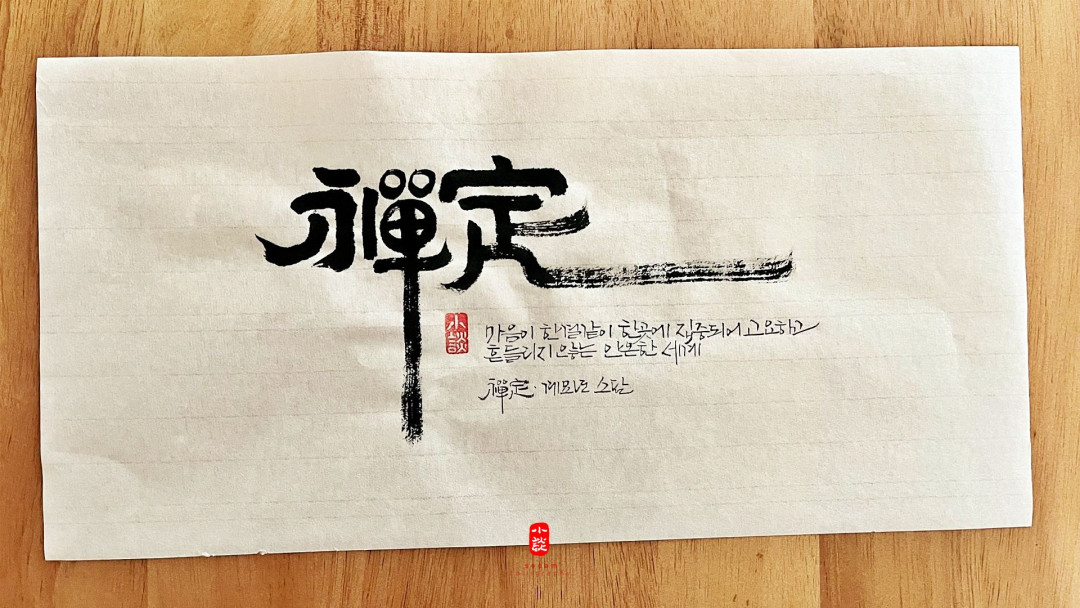 禪定
小談
마음이 한결같이 한곳에 집중되어 고요하고
흔들리지 않는 안온한 세계
禪定·계묘년 소담
小談